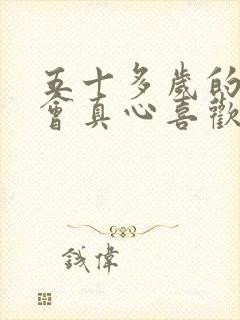 五十多歲的
會真心喜歡
鈛偉